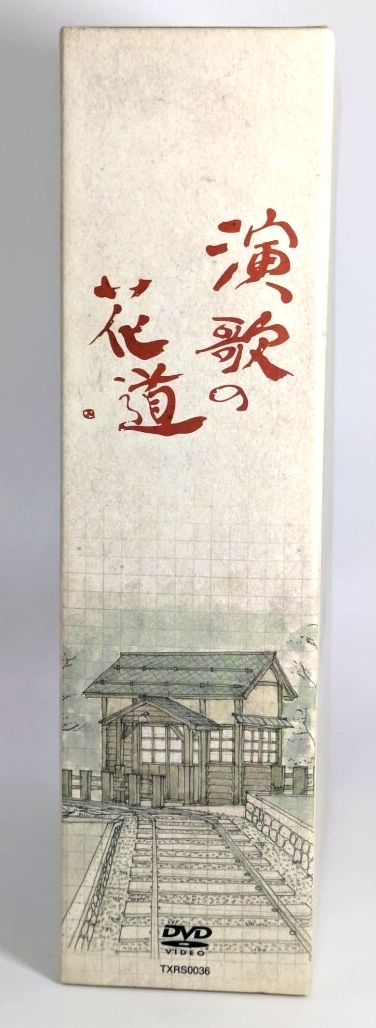 演歌の
花道
DVD
VIDEO
TXRS0036